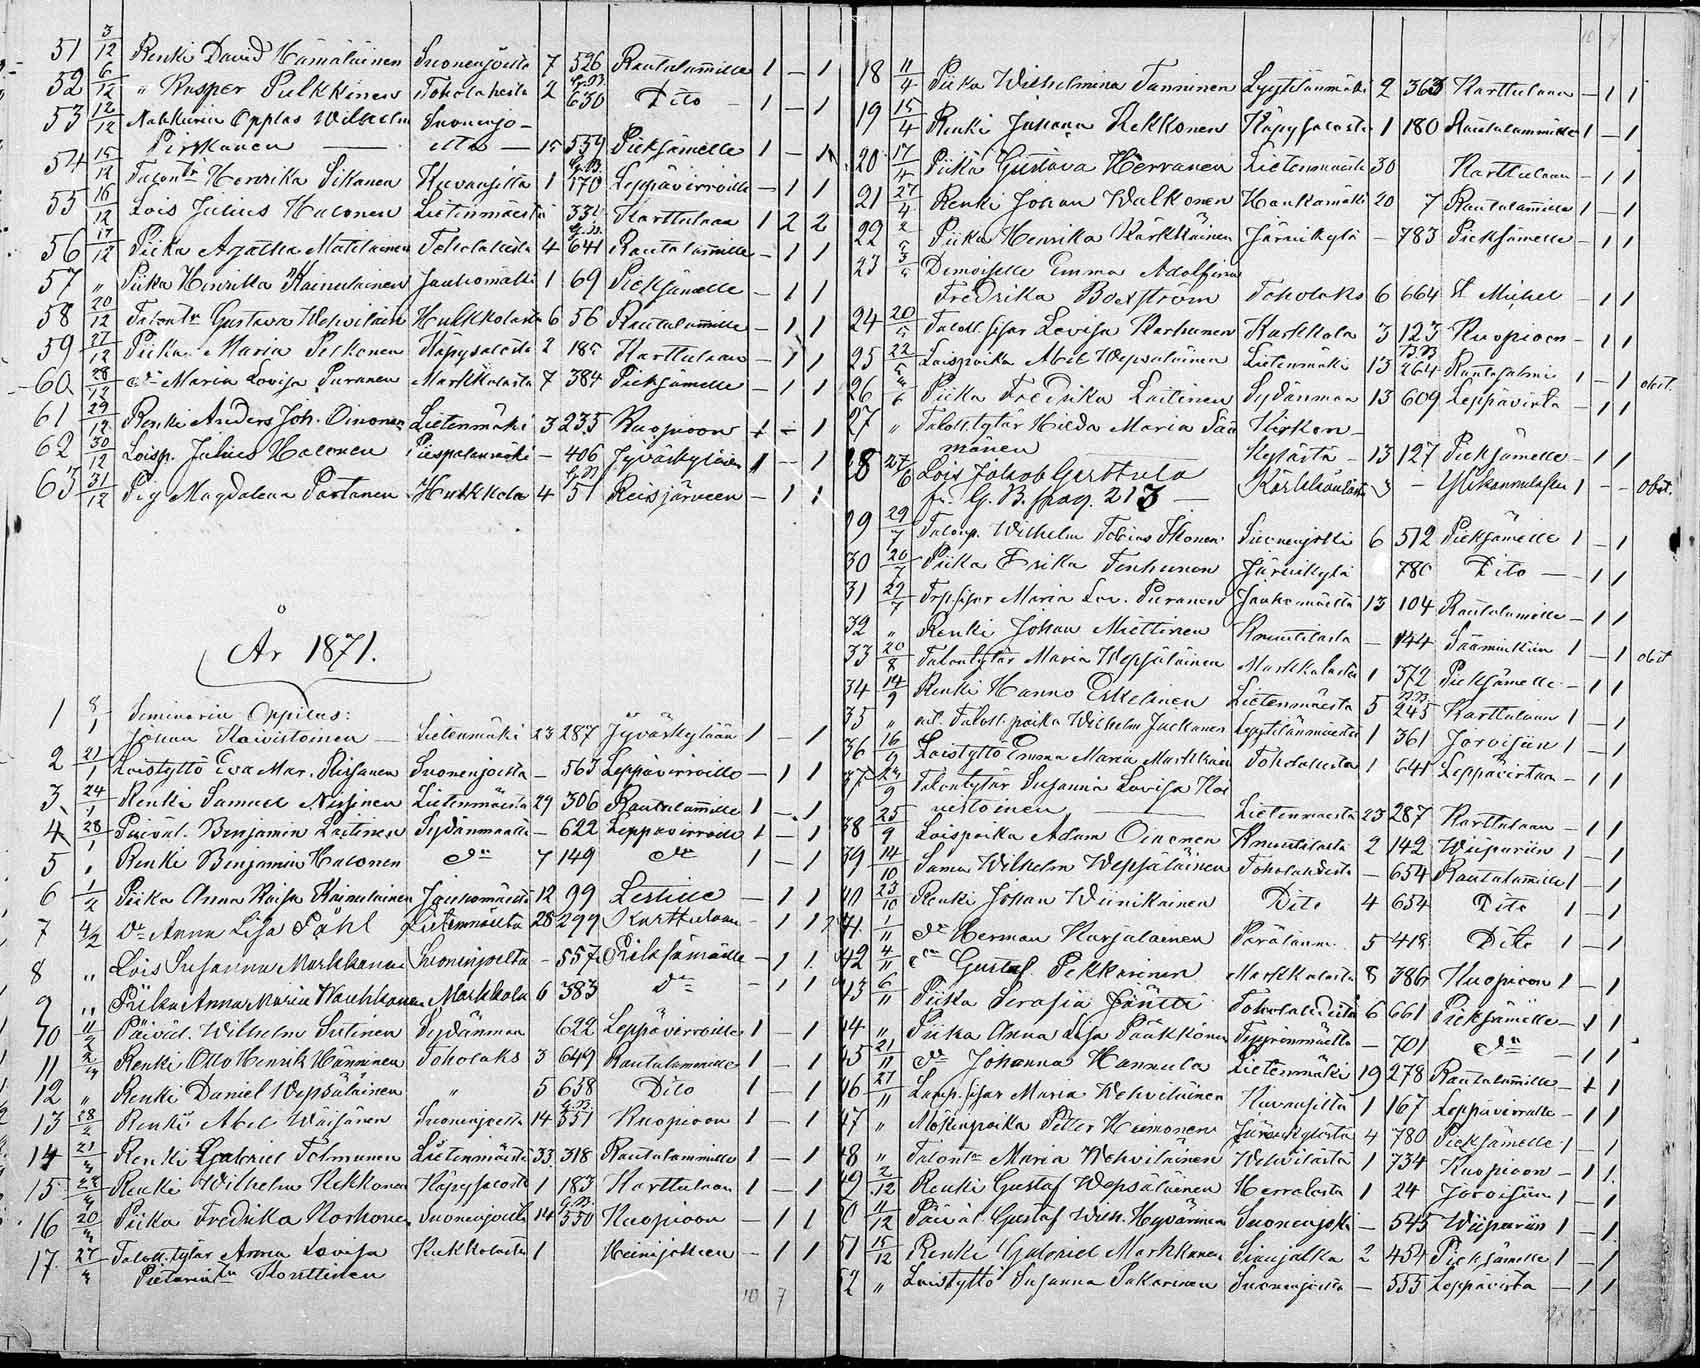 51 3/12 Renki David Hämäläinen Suonenjoelta 7 526 Rautalammille 1 – 1
52 6/12 " Kasper Pulkkinen Toholahesta 2 630 Dito – 1 – 1
53 12/12 Oppilas Wilhelm Suonenjo-
Pirkkanen elta 15 559 Pieksämelle 1 – 1
54 15/12 Henrika Sikanen Kuvansilta 1 170 Leppävirroille – 1 1
55 16/12 Lois Julius Halonen Lietenmäestä Karttulaan 1 2 2
56 17/12 Piika Agatha Matilainen Toholahesta 4 641 Rautalammille – 1 1
57 " Piika Henrika Kainulainen Jauhomäki 1 69 Pieksämelle – 1 1
58 20/12 Gustava Wehviläin Hulkkolasta 6 56 Rautalammille – 1 1
59 27/12 Piika Maria Pelkonen Käpysalosta 2 185 Karttulaan – 1 1
60 28/12 do Maria Lovisa Puranen Markkalasta 7 384 Pieksämelle – 1 1
61 29/12 Renki Anders Joh. Oinonen Lietenmäki 3 235 Kuopioon 1 – 1
62 30/12 Loisp. Julius Halonen – 406 Jyväskylään 1 – 1
63 31/12 Pig Magdalena Partanen Hulkkola 4 51 Reisjärveen – 1 1
År 1871.
1 8/1 Seminarin Oppilas:
Johan Koivistoinen Lietenmäki 23 287 Jyväskylään 1 – 1
2 21/1 Loistyttö Eva Mar. Suonenjoelta – 563 Leppävirroille – 1 1
3 24/1 Renki Samuel Nissinen Lietenmäestä 29 306 Rautalammille 1 – 1
4 28/1 Päiväl. Benjamin Laitinen Sydänmaalta – 622 Leppävirroille 1 – 1
5 " Renki Benjamin Halonen do 7 149 do 1 – 1
6 1/2 Piika Anna Kaisa Kainulainen Jauhomäestä 12 99 Lestille – 1 1
7 4/2 do Anna Lisa Påhl Lietenmäestä 28 299 Karttulaan – 1 1
8 " Lois Susanna Markkanen Suonenjoelta – 557 Pieksämäelle – 1 1
9 " Piika Anna Maria Markkala 6 383 do – 1 1
10 11/2 Päiväl. Wilhelm Sutinen Sydänmaa 622 Leppävirroille 1 – 1
11 Renki Otto Henrik Hänninen Toholaks 3 649 Rautalammille 1 – 1
12 " Renki Daniel Wepsäläinen " 5 638 Dito 1 – 1
13 28/2 Renki Abel Wäisänen Suonenjoelta 14 551 Kuopioon 1 – 1
14 21/3 Renki Gabriel Tolmunen Lietenmäestä 33 318 Rautalammille 1 – 1
15 22/3 Renki Wilhelm Kekkonen Käpysalosta 1 183 Karttulaan 1 – 1
16 20/3 Piika Fredrika Korhonen Suonenjoelta 14 550 Kuopioon – 1 1
17 27/3 Talon.tytär Anna Lovisa Kukkolasta 1 – 1 1
Korttinen
10 7
18 11/4 Piika Wilhelmina Tanninen Lyytilänmäki 2 363 Karttulaan – 1 1
19 15/4 Renki Juhana Kekkonen Käpysalosta 1 180 Rautalammille 1 – 1
20 17/4 Piika Gustava Herranen Lietenmäestä 30 Karttulaan – 1 1
21 27/4 Renki Johan Walkonen Haukamäki 20 7 Rautalammille 1 – 1
22 2/5 Piika Henrika Kärkkäinen Järvikylä – 783 Pieksämelle – 1 1
23 3/5 Demoiselle Emma Adolfina
Fredrika Boxström Toholaks 6 664 St Michel – 1 1
24 20/5 Lovisa Karhunen Karkkola 3 123 Kuopioon – 1 1
25 22/5 Loispoika Abel Wepsäläinen Lietenmäki 13 264 Rantasalmi 1 – 1 obst.
26 Piika Fredrika Laitinen Sydänmaa 13 609 Leppävirta – 1 1
27 " Talon.tytär Hilda Maria Kirkon-
mänen kylästä – 13 127 Pieksämelle – 1 1
28 Lois Jakob Gerttula 3 – Ylikannukselle 1 – – obst.
fr. G. B. pag. 213
29 29/7 Talonp. Wilhelm Tobias Suonenjoelta 6 512 Pieksämelle 1 – 1
30 20/7 Piika Erika Tenhunen Järvikylä 780 Dito – 1 1
31 29/7 Maria Lov. Puranen Jauhomäestä 13 104 Rautalammille – 1 1
32 " Renki Johan Miettinen Kmuutilasta – 144 Sääminkiin 1 – 1 obst
33 20/8 Talontytär Maria Wepsäläinen Markkalasta 1 372 Pieksämelle – 1 1
34 14/9 Renki Hanno Eskelinen Lietenmäestä 5 245 Karttulaan 1 – 1
35 " Talon.poika Wilhelm Lyytilänmäestä 1 361 Joroisiin 1 – 1
36 16/9 Loistyttö Emma Maria Toholahesta 1 641 Leppävirtaa – 1 1
37 Talontytär Susanna Lovisa Koi
vistoinen Lietenmäestä 23 287 Karttulaan – 1 1
38 25/9 Loispoika Adam Oinonen Kmuutilasta 2 142 Wiipuriin 1 – 1
39 14/10 Wilhelm Wepsäläinen Toholahdesta – 654 Rautalammille 1 – 1
40 23/10 Renki Johan Wiinikainen Dito 4 654 Dito 1 – 1
41 1/11 do Herman Karjalainen 5 418 Dito 1 – 1
42 4/11 do Gustaf Pekkarinen Markkalasta 8 386 Kuopioon 1 – 1
43 6/11 Piika Serafia Jäntti Toholahdesta 6 661 Pieksämelle – 1 1
44 " Piika Anna Lisa Pääkkönen – 701 do – 1 1
45 21/11 do Johanna Hannula Lietenmäki 19 278 Rautalammille – 1 1
46 27/11 Maria Wehviläinen Kuvansilta 1 167 Leppävirralle – 1 1
47 " Petter Heimonen Järvikylästä 4 780 Pieksämelle 1 – 1
48 " Maria Wehviläinen Wehvilästä 1 734 Kuopioon – 1 1
49 2/12 Renki Gustaf Wepsäläinen Herralasta 1 24 Joroisiin 1 – 1
50 11/12 Päiväl. Gustaf Wilh. Hyvärinen Suonenjoki – 545 Wiipuriin 1 – 1
51 15/12 Renki Gabriel Markkanen Sianjalka 2 454 Pieksämelle 1 – 1
52 " Loistyttö Susanna Pakarinen Suonenjoelta – 555 Leppävirta – 1 1